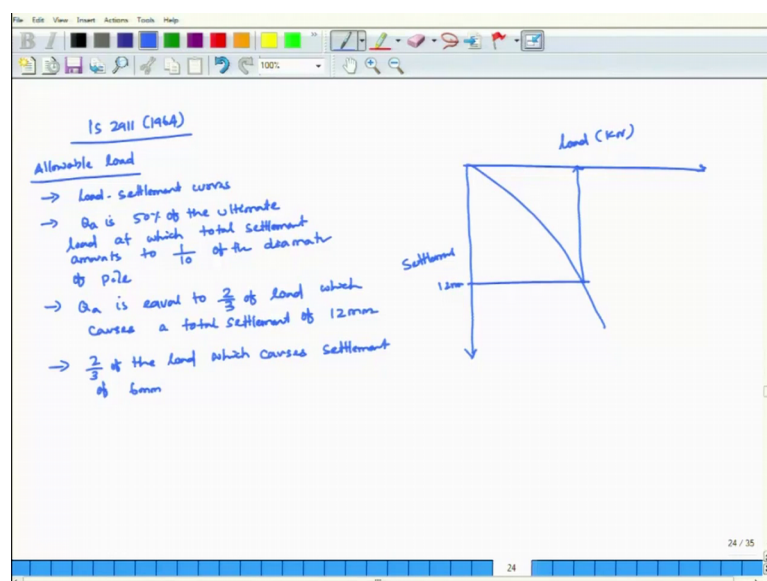 File Edit View Insert Actions Tools Help
B I
100%
IS 2911 (1964)
Allowable load
→ Load-settlement curves
→ Qa is 50% of the ultimate
load at which total settlement
amounts to 1/10 of the diamater
of pile
→ Qa is equal to 2/3 of load which
causes a total settlement of 12mm
→ 2/3 of the load which causes settlement
of 6mm
load (KN)
Settlement
12mm
24 / 35
24